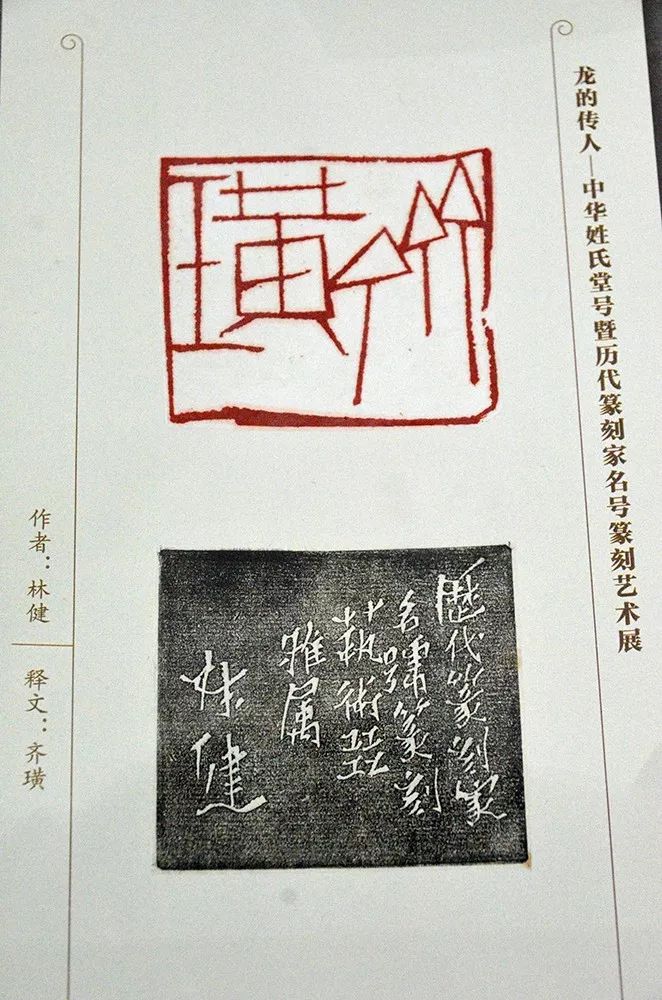 龙的传人—中华姓氏堂号暨历代篆刻家名号篆刻艺术展
齊璜
歷代篆刻家
名號篆刻
蓺術㠭
雅属
林健
作者：林健
释文：齐璜